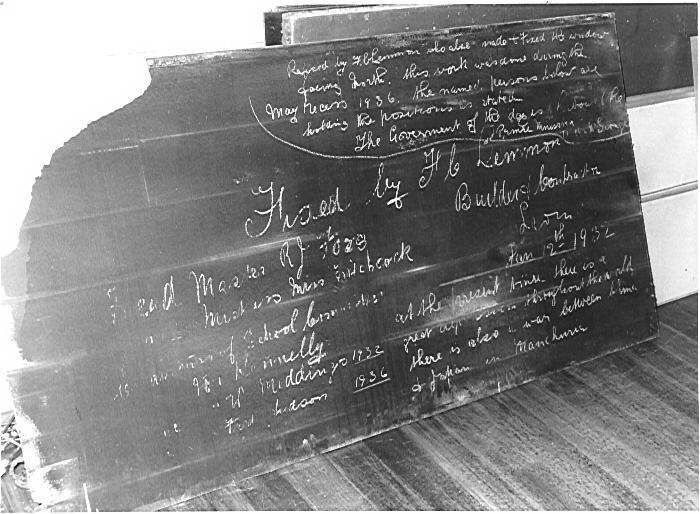 Revised by F C Lemmon who also made & fixed the window
facing North. this work was done during the
May recess 1936. the named persons below are
holding the positions as stated
The Goverment of the day is Labour
Prime Minister
Fixed by F C Lemmon
Building Contractor
Levin
Jan 12th 1932
Head Master R J
Mistress Miss Hitchcock
of School Committee
Connelly
W Meddings 1932
Fred Judson 1936
at the present time there is a
great throughout the world
there is also a war between China
& Japan in Manchuria